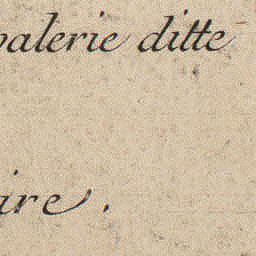 valerie ditte
ire.